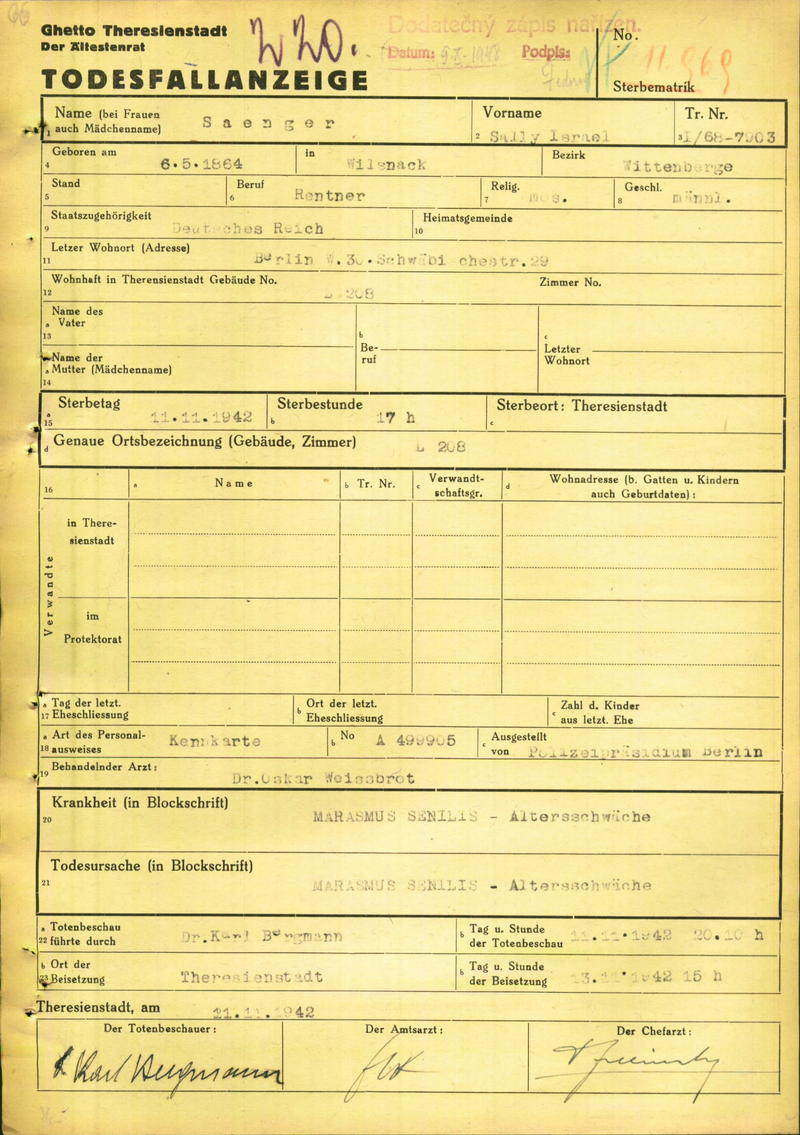 Ghetto Theresienstadt
Der Ältestenrat
TODESFALLANZEIGE
Dodatečný zápis nařízen.
Datum: Podpis:
No.
11.869
Sterbematrik
Name (bei Frauen
1 auch Mädchenname) Saenger
Vorname
2 Sally Israel
Tr. Nr.
3 I/68-7903
Geboren am
4 6.5.1864
in
Wilsnack
Bezirk
Wittenberge
Stand
5
Beruf
6 Rentner
Relig.
7 mos.
Geschl.
8 männl.
Staatszugehörigkeit
9 Deutsches Reich
Heimatsgemeinde
10
Letzer Wohnort (Adresse)
11 Berlin W.30.Schwäbi chestr.29
Wohnhaft in Therensienstadt Gebäude No.
12 L 208
Zimmer No.
Name des
a Vater
13
b
Be-
ruf
c
Letzter
Wohnort
Name der
a Mutter (Mädchenname)
14
Sterbetag
a 15 11.11.1942
Sterbestunde
b 17 h
Sterbeort: Theresienstadt
c
d Genaue Ortsbezeichnung (Gebäude, Zimmer) L 208
16
a Name
b Tr. Nr.
c Verwandt-
schaftsgr.
d Wohnadresse (b. Gatten u. Kindern
auch Geburtdaten):
Verwandte
in There-
sienstadt
im
Protektorat
a Tag der letzt.
17 Eheschliessung
b Ort der letzt.
Eheschliessung
c Zahl d. Kinder
aus letzt. Ehe
a Art des Personal-
18 ausweises Kennkarte
b No A 499905
c Ausgestellt
von Polizeipräsidium Berlin
Behandelnder Arzt:
19 Dr.Oskar Weissbrot
Krankheit (in Blockschrift)
20 MARASMUS SENILIS - Altersschwäche
Todesursache (in Blockschrift)
21 MARASMUS SENILIS - Altersschwäche
a Totenbeschau
22 führte durch Dr.Karl Bergmann
b Tag u. Stunde
der Totenbeschau 11.11.1942 20.10 h
b Ort der
23 Beisetzung Theresienstadt
b Tag u. Stunde
der Beisetzung 13.11.1942 15 h
Theresienstadt, am 11.11.1942
Der Totenbeschauer:
Der Amtsarzt:
Der Chefarzt:
Karl Bergmann